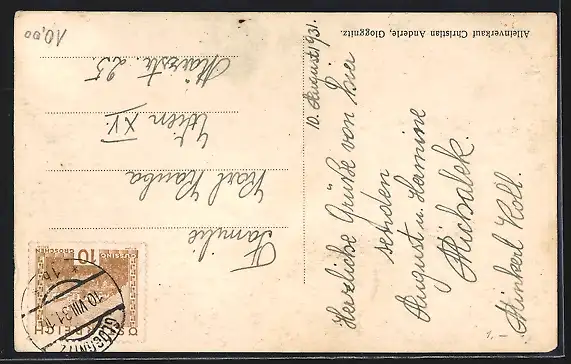 10,00
Alleinverkauf Christian Anderle, Gloggnitz.
10. August 1931.
Herzliche Grüße von hier
senden
August u. Hamine
Michalek.
Minkerl Koll.
1,-
Familie
Karl Kauba
Wien XV.
Märzstr. 25.
GÜSSING
10
GROSCHEN
ÖSTERREICH
10.VIII.31
GLOGGNITZ